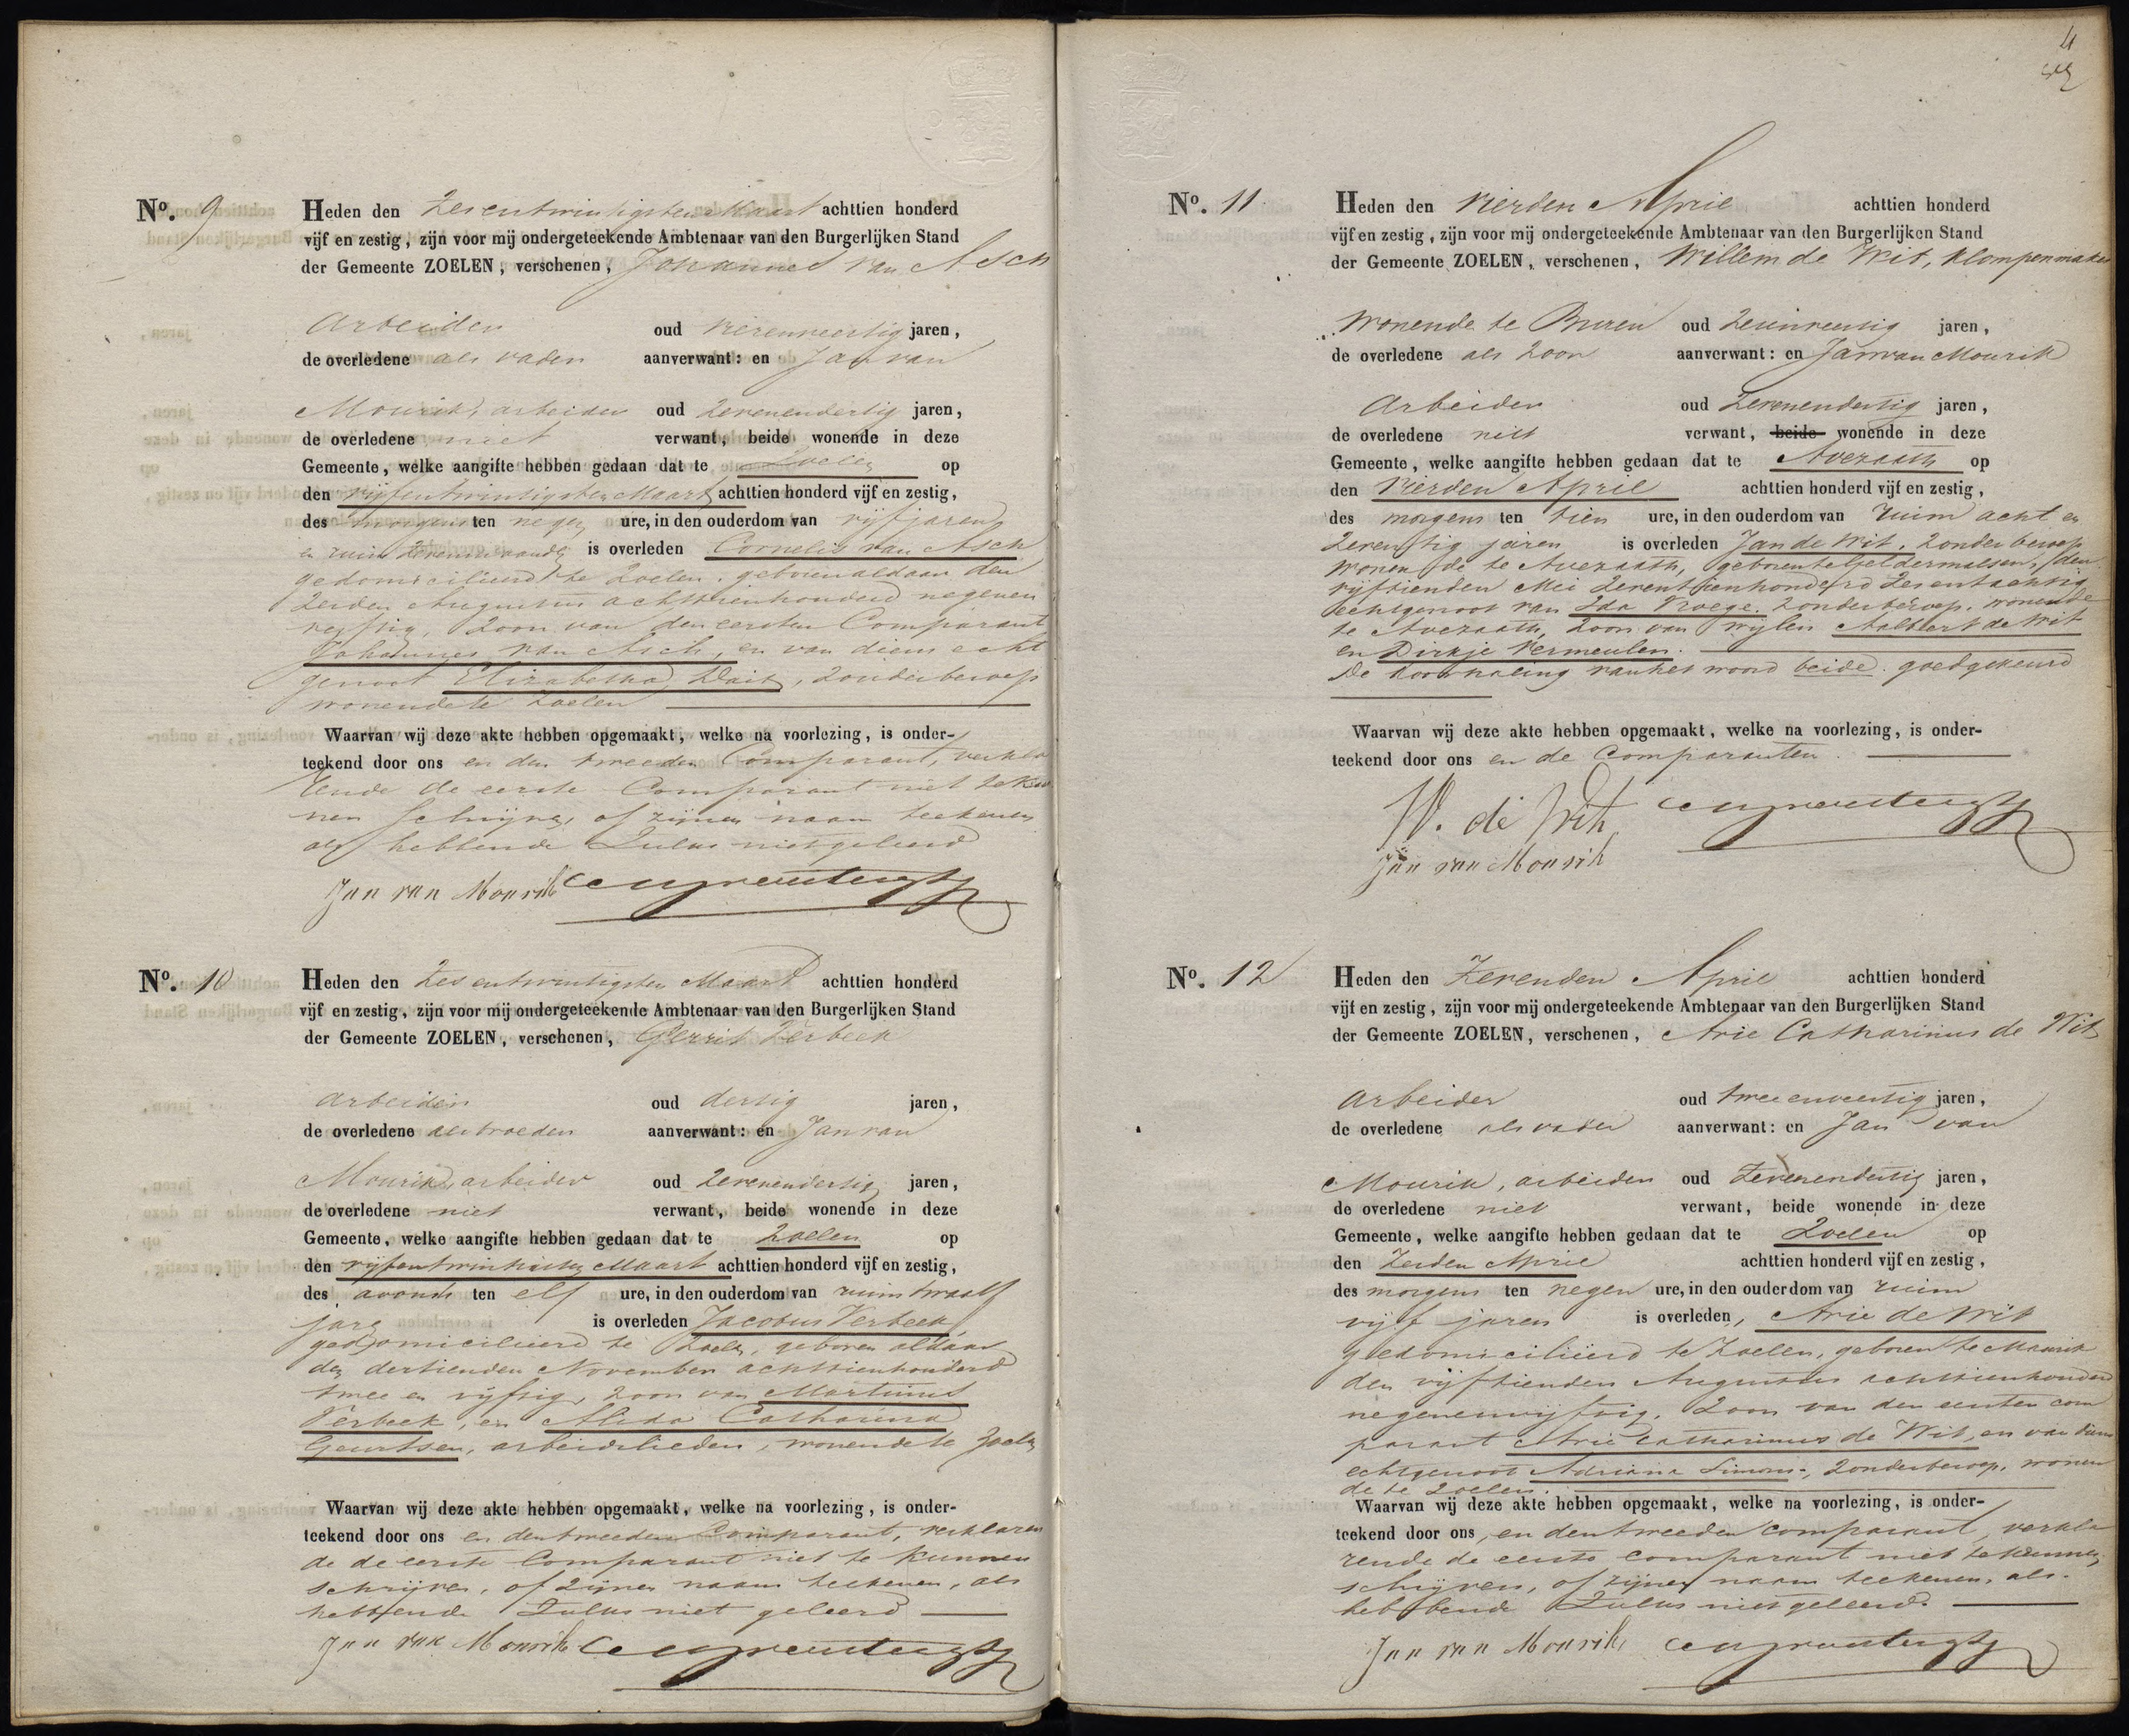 Nº. 9
Heden den Zesentwintigsten Maart achttien honderd
vijf en zestig, zijn voor mij ondergeteekende Ambtenaar van den Burgerlijken Stand
der Gemeente ZOELEN, verschenen, Johannes van Asch
Arbeider oud vierenveertig jaren,
de overledene als vader aanverwant: en Jan van
Mourik, arbeider oud zevenendertig jaren,
de overledene niet verwant, beide wonende in deze
Gemeente, welke aangifte hebben gedaan dat te Zoelen op
den vijfentwintigsten Maart achttien honderd vijf en zestig,
des morgens ten negen ure, in den ouderdom van vijf jaren
en ruim zeven maanden is overleden Cornelis van Asch
gedomicilieerd te Zoelen, geboren aldaar den
Zesden Augustus achttienhonderd negenen
vijftig, Zoon van den eersten Comparant
Johannes van Asch, en van diens echt
genoot Elizabetha Dait, zonder beroep
wonende te Zoelen
Waarvan wij deze akte hebben opgemaakt, welke na voorlezing, is onder-
teekend door ons en den tweeden Comparant, verkla
rende de eerste Comparant niet te kun
nen Schrijven, of zijnen naam teekenen
als hebbende Zulks niet geleerd
Jan van Mourik
Nº. 10
Heden den Zesentwintigsten Maart achttien honderd
vijf en zestig, zijn voor mij ondergeteekende Ambtenaar van den Burgerlijken Stand
der Gemeente ZOELEN, verschenen, Gerrit Verbeek
arbeider oud dertig jaren,
de overledene als broeder aanverwant: en Jan van
Mourik, arbeider oud zevenendertig jaren,
de overledene niet verwant, beide wonende in deze
Gemeente, welke aangifte hebben gedaan dat te Zoelen op
den vijfentwintigsten Maart achttien honderd vijf en zestig,
des avonds ten elf ure, in den ouderdom van ruim twaalf
jare is overleden Jacobus Verbeek
gedomicilieerd te Zoelen, geboren aldaar
den dertienden November achttienhonderd
twee en vijftig, zoon van Martinus
Verbeek, en Alida Catharina
Geurtsen, arbeidslieden, wonende te Zoelen
Waarvan wij deze akte hebben opgemaakt, welke na voorlezing, is onder-
teekend door ons en den tweeden Comparant, verklaren
de de eerste Comparant niet te kunnen
schrijven, of zijnen naam teekenen, als
hebbende Zulks niet geleerd
Jan van Mourik
4
Nº. 11
Heden den Vierden April achttien honderd
vijf en zestig, zijn voor mij ondergeteekende Ambtenaar van den Burgerlijken Stand
der Gemeente ZOELEN, verschenen, Willem de Wit, klompenmaker
Wonende te Buren oud zesenveertig jaren,
de overledene als zoon aanverwant: en Jan van Mourik
Arbeider oud zevenendertig jaren,
de overledene niet verwant, beide wonende in deze
Gemeente, welke aangifte hebben gedaan dat te Avezaath op
den Vierden April achttien honderd vijf en zestig,
des morgens ten tien ure, in den ouderdom van ruim acht en
zeventig jaren is overleden Jan de Wit, zonder beroep
wonende te Avezaath, geboren te Geldermalsen, den
vijftienden Mei zeventienhonderd zesentachtig
echtgenoot van Ida Vroege, zonder beroep, wonende
te Avezaath, Zoon van wijlen Aalbert de Wit
en Dirkje Vermeulen.
De doorhaling van het woord beide goedgekeurd
Waarvan wij deze akte hebben opgemaakt, welke na voorlezing, is onder-
teekend door ons en de Comparanten.
W. de Wit
Jan van Mourik
Nº. 12
Heden den Zevenden April achttien honderd
vijf en zestig, zijn voor mij ondergeteekende Ambtenaar van den Burgerlijken Stand
der Gemeente ZOELEN, verschenen, Arie Catharinus de Wit
Arbeider oud twee enveertig jaren,
de overledene als vader aanverwant: en Jan van
Mourik, arbeider oud Zevenendertig jaren,
de overledene niet verwant, beide wonende in deze
Gemeente, welke aangifte hebben gedaan dat te Zoelen op
den Zesden April achttien honderd vijf en zestig,
des morgens ten negen ure, in den ouderdom van ruim
vijf jaren is overleden, Arie de Wit
gedomicilieerd te Zoelen, geboren te Maurik
den vijftienden Augustus achttienhonderd
negenenvijftig, Zoon van den eersten com
parant Arie Catharinus de Wit, en van diens
echtgenoot Adriana Simons, zonder beroep, wonen
de te Zoelen.
Waarvan wij deze akte hebben opgemaakt, welke na voorlezing, is onder-
teekend door ons, en den tweeden comparant, verkla
rende de eerste comparant niet te kunnen
schrijven, of zijnen naam teekenen, als
hebbende Zulks niet geleerd.
Jan van Mourik